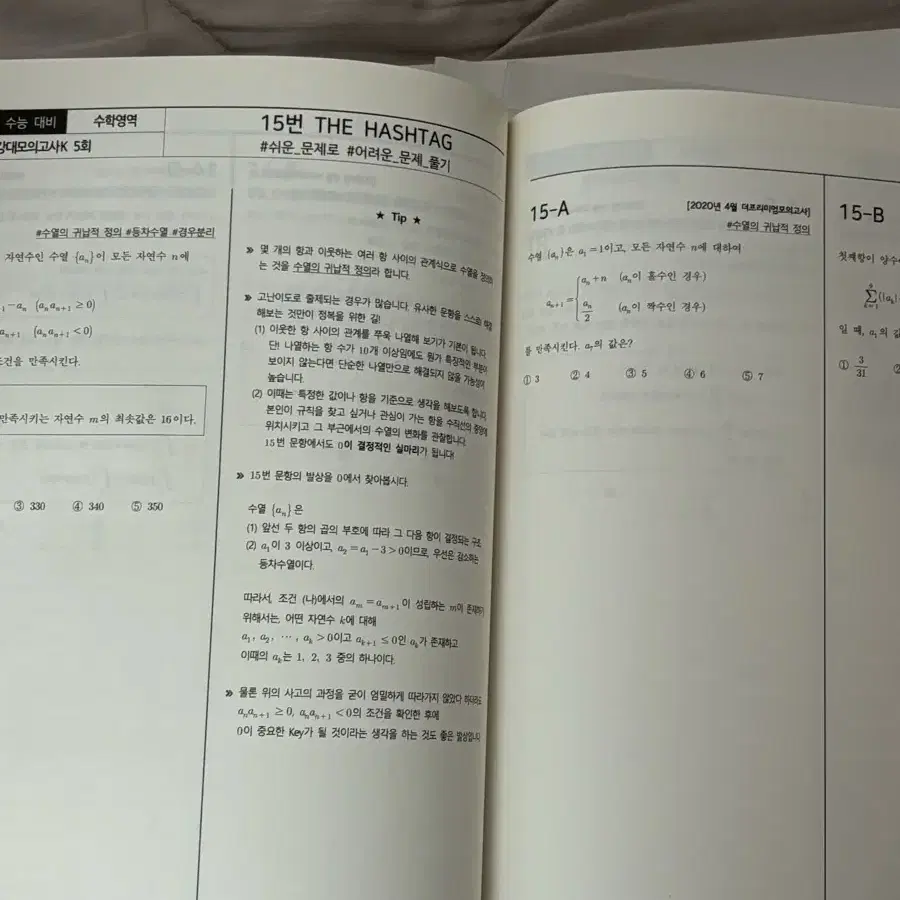 수능 대비
수학영역
강대모의고사K 5회
#수열의 귀납적 정의 #등차수열 #경우분리
자연수인 수열 {aₙ}이 모든 자연수 n에
−aₙ (aₙaₙ₊₁ ≥ 0)
aₙ₊₁ (aₙaₙ₊₁ < 0)
조건을 만족시킨다.
만족시키는 자연수 m의 최솟값은 16이다.
③ 330 ④ 340 ⑤ 350
15번 THE HASHTAG
#쉬운_문제로 #어려운_문제_풀기
★ Tip ★
» 몇 개의 항과 이웃하는 여러 항 사이의 관계식으로 수열을 정의하
는 것을 수열의 귀납적 정의라 합니다.
» 고난이도로 출제되는 경우가 많습니다. 유사한 문항을 스스로 해결
해보는 것만이 정복을 위한 길!
(1) 이웃한 항 사이의 관계를 쭈욱 나열해 보기가 기본이 됩니다.
단! 나열하는 항 수가 10개 이상임에도 뭔가 특징적인 부분이
보이지 않는다면 단순한 나열만으로 해결되지 않을 가능성이
높습니다.
(2) 이때는 특정한 값이나 항을 기준으로 생각을 해보도록 합니다.
본인이 규칙을 찾고 싶거나 관심이 가는 항을 수직선의 중앙에
위치시키고 그 부근에서의 수열의 변화를 관찰합니다.
15번 문항에서도 0이 결정적인 실마리가 됩니다!
» 15번 문항의 발상을 0에서 찾아봅시다.
수열 {aₙ}은
(1) 앞선 두 항의 곱의 부호에 따라 그 다음 항이 결정되는 구조
(2) a₁이 3 이상이고, a₂ = a₁ − 3 > 0이므로, 우선은 감소하는
등차수열이다.
따라서, 조건 (나)에서의 aₘ = aₘ₊₁이 성립하는 m이 존재하기
위해서는, 어떤 자연수 k에 대해
a₁, a₂, ⋯, aₖ > 0이고 aₖ₊₁ ≤ 0인 aₖ가 존재하고
이때의 aₖ는 1, 2, 3 중의 하나이다.
» 물론 위의 사고의 과정을 굳이 엄밀하게 따라가지 않았다 하더라도
aₙaₙ₊₁ ≥ 0, aₙaₙ₊₁ < 0의 조건을 확인한 후에
0이 중요한 Key가 될 것이라는 생각을 하는 것도 좋은 발상입니다
15-A
[2020년 4월 더프리미엄모의고사]
#수열의 귀납적 정의
수열 {aₙ}은 a₁ = 1이고, 모든 자연수 n에 대하여
aₙ + n (aₙ이 홀수인 경우)
aₙ₊₁ =
aₙ/2 (aₙ이 짝수인 경우)
를 만족시킨다. a₇의 값은?
① 3 ② 4 ③ 5 ④ 6 ⑤ 7
15-B
첫째항이 양수
일 때, a₁의 값
① 3/31